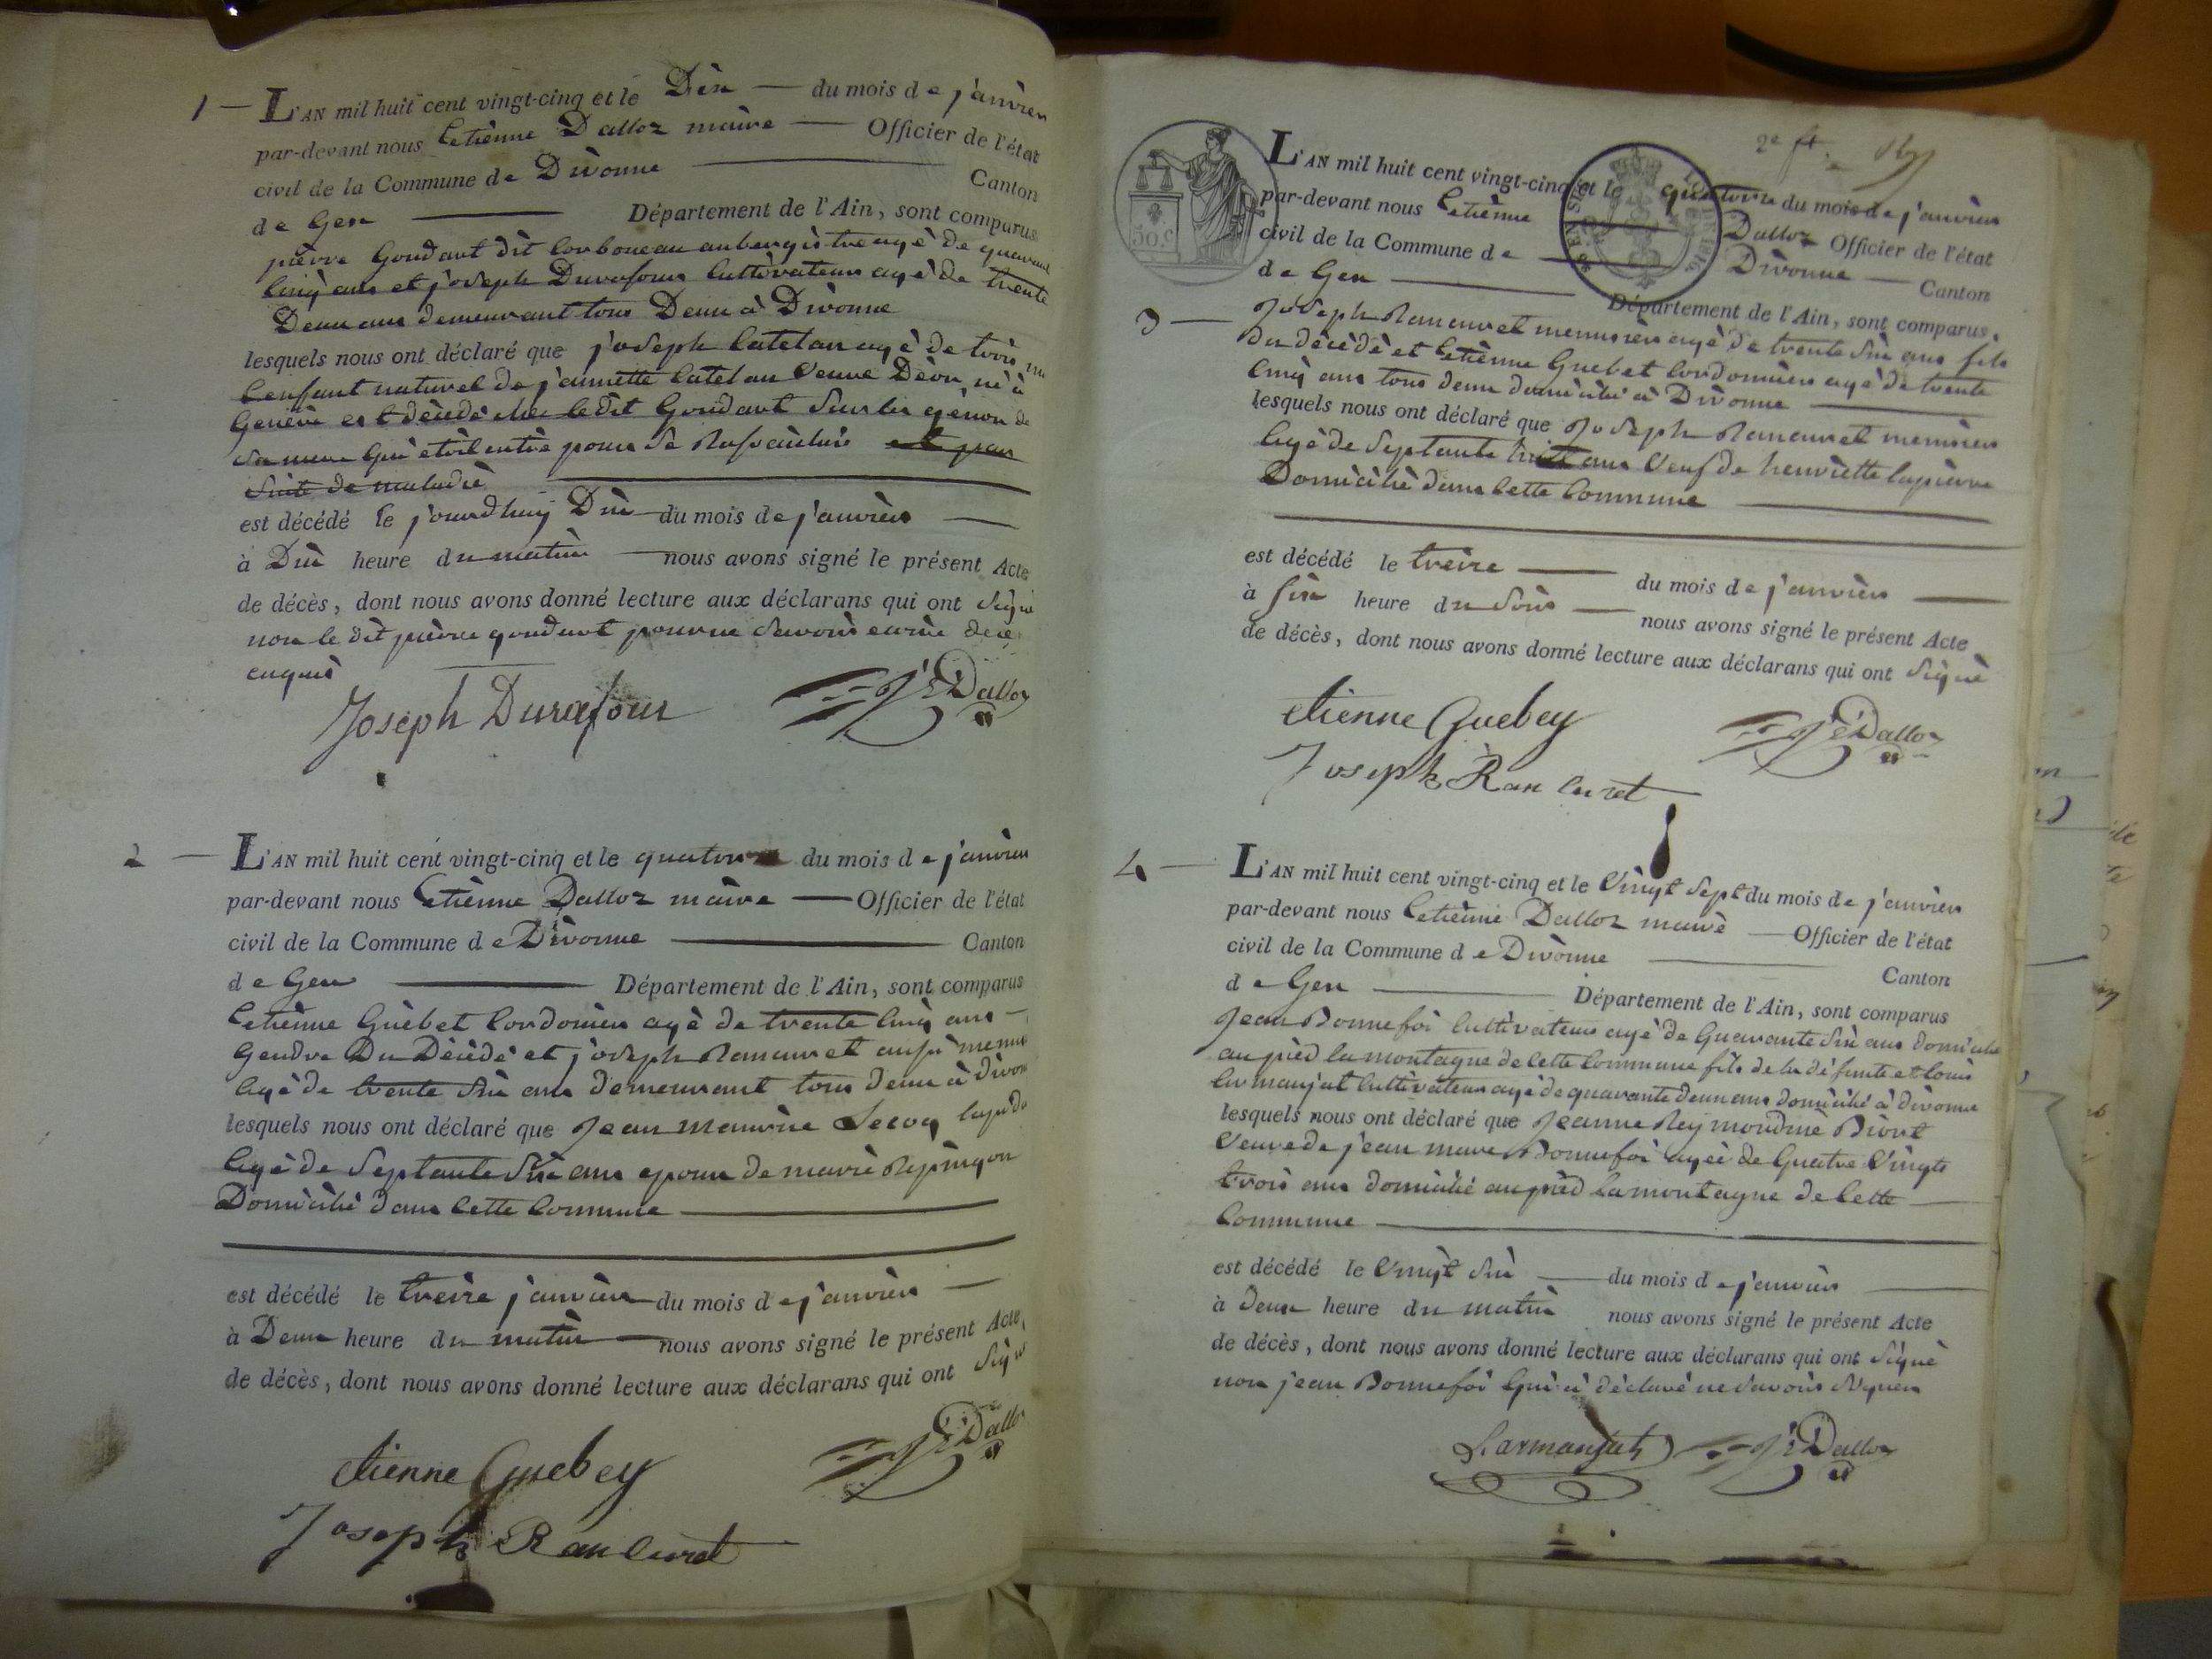 1 — L'AN mil huit cent vingt-cinq et le Dix — du mois de janvier
par-devant nous Etiènne Dalloz maire — Officier de l'état
civil de la Commune de Divonne — Canton
de Gex — Département de l'Ain, sont comparus
pièrre Goudart dit aubergiste agé de quarante
cinq ans et joseph Durafour cultivateur agé de trente
Deux ans demeurant tous Deux à Divonne
lesquels nous ont déclaré que joseph Catelan agé de trois
enfant naturel de jannette Catelan veuve né à
Genève est décédé chez le dit Goudart sur les genoux de
sa mere qui étoit entré pour se et par
suite de maladie
est décédé le jourdhuy Dix du mois de janvièr —
à Dix heure du matin — nous avons signé le présent Acte
de décès, dont nous avons donné lecture aux déclarans qui ont signé
non le dit pièrre goudart pour ne savoir ecrire de ce
enquis
Joseph Durafour
J E Dalloz
2 — L'AN mil huit cent vingt-cinq et le quatorze du mois de janvier
par-devant nous Etiènne Dalloz maire — Officier de l'état
civil de la Commune de Divonne — Canton
de Gex — Département de l'Ain, sont comparus
Etiènne Guèbet Cordonièr agé de trente cinq ans —
Gendre Du Décédé et joseph Rancuret
agé de trente six ans demeurant tous deux à divonne
lesquels nous ont déclaré que Jean maurice Lecoq
agé de Septante Six ans epoux de marie
Domicilié dans cette commune —
est décédé le treize janvier du mois de janvièr —
à Deux heure du matin — nous avons signé le présent Acte,
de décès, dont nous avons donné lecture aux déclarans qui ont signé
etienne Guebey
J E Dalloz
Joseph Rancuret
2e ft.
50.c
L'AN mil huit cent vingt-cinq et le quatorze du mois de janvièr
par-devant nous Etiènne Dalloz Officier de l'état
civil de la Commune de — Divonne — Canton
de Gex — Département de l'Ain, sont comparus.
3 — Joseph Rancuret menusièr agé de trente six ans fils
du décédé et Etiènne Guebet Cordonnièr agé de trente
cinq ans tous deux domicilié à Divonne —
lesquels nous ont déclaré que Joseph Rancuret menusier
agé de Septante huit ans Veuf de henriette lapierre
Domicilié dans cette Commune —
est décédé le treize — du mois de janvièr —
à six heure du soir — nous avons signé le présent Acte
de décès, dont nous avons donné lecture aux déclarans qui ont signé
etienne Guebey
J E Dalloz
Joseph Rancuret
4 — L'AN mil huit cent vingt-cinq et le Vingt Sept du mois de janvièr
par-devant nous Etiènne Dalloz maire — Officier de l'état
civil de la Commune de Divonne — Canton
de Gex — Département de l'Ain, sont comparus
Jean Bonnefoi Cultivateur agé de Quarante six ans domicilié
au pièd la montagne de cette Commune fils de la défunte et louis
larmanjat Cultivateur agé de quarante deux ans domicilié à divonne
lesquels nous ont déclaré que Jeanne Reymondine
Veuve de jean marc Bonnefoi agée de Quatre Vingts
trois ans domicilié au pièd la montagne de cette —
Commune —
est décédé le Vingt Six — du mois de janvièr —
à deux heure du matin nous avons signé le présent Acte
de décès, dont nous avons donné lecture aux déclarans qui ont signé
non jean Bonnefoi Qui à déclaré ne savoir signer
Larmanjat
J E Dalloz